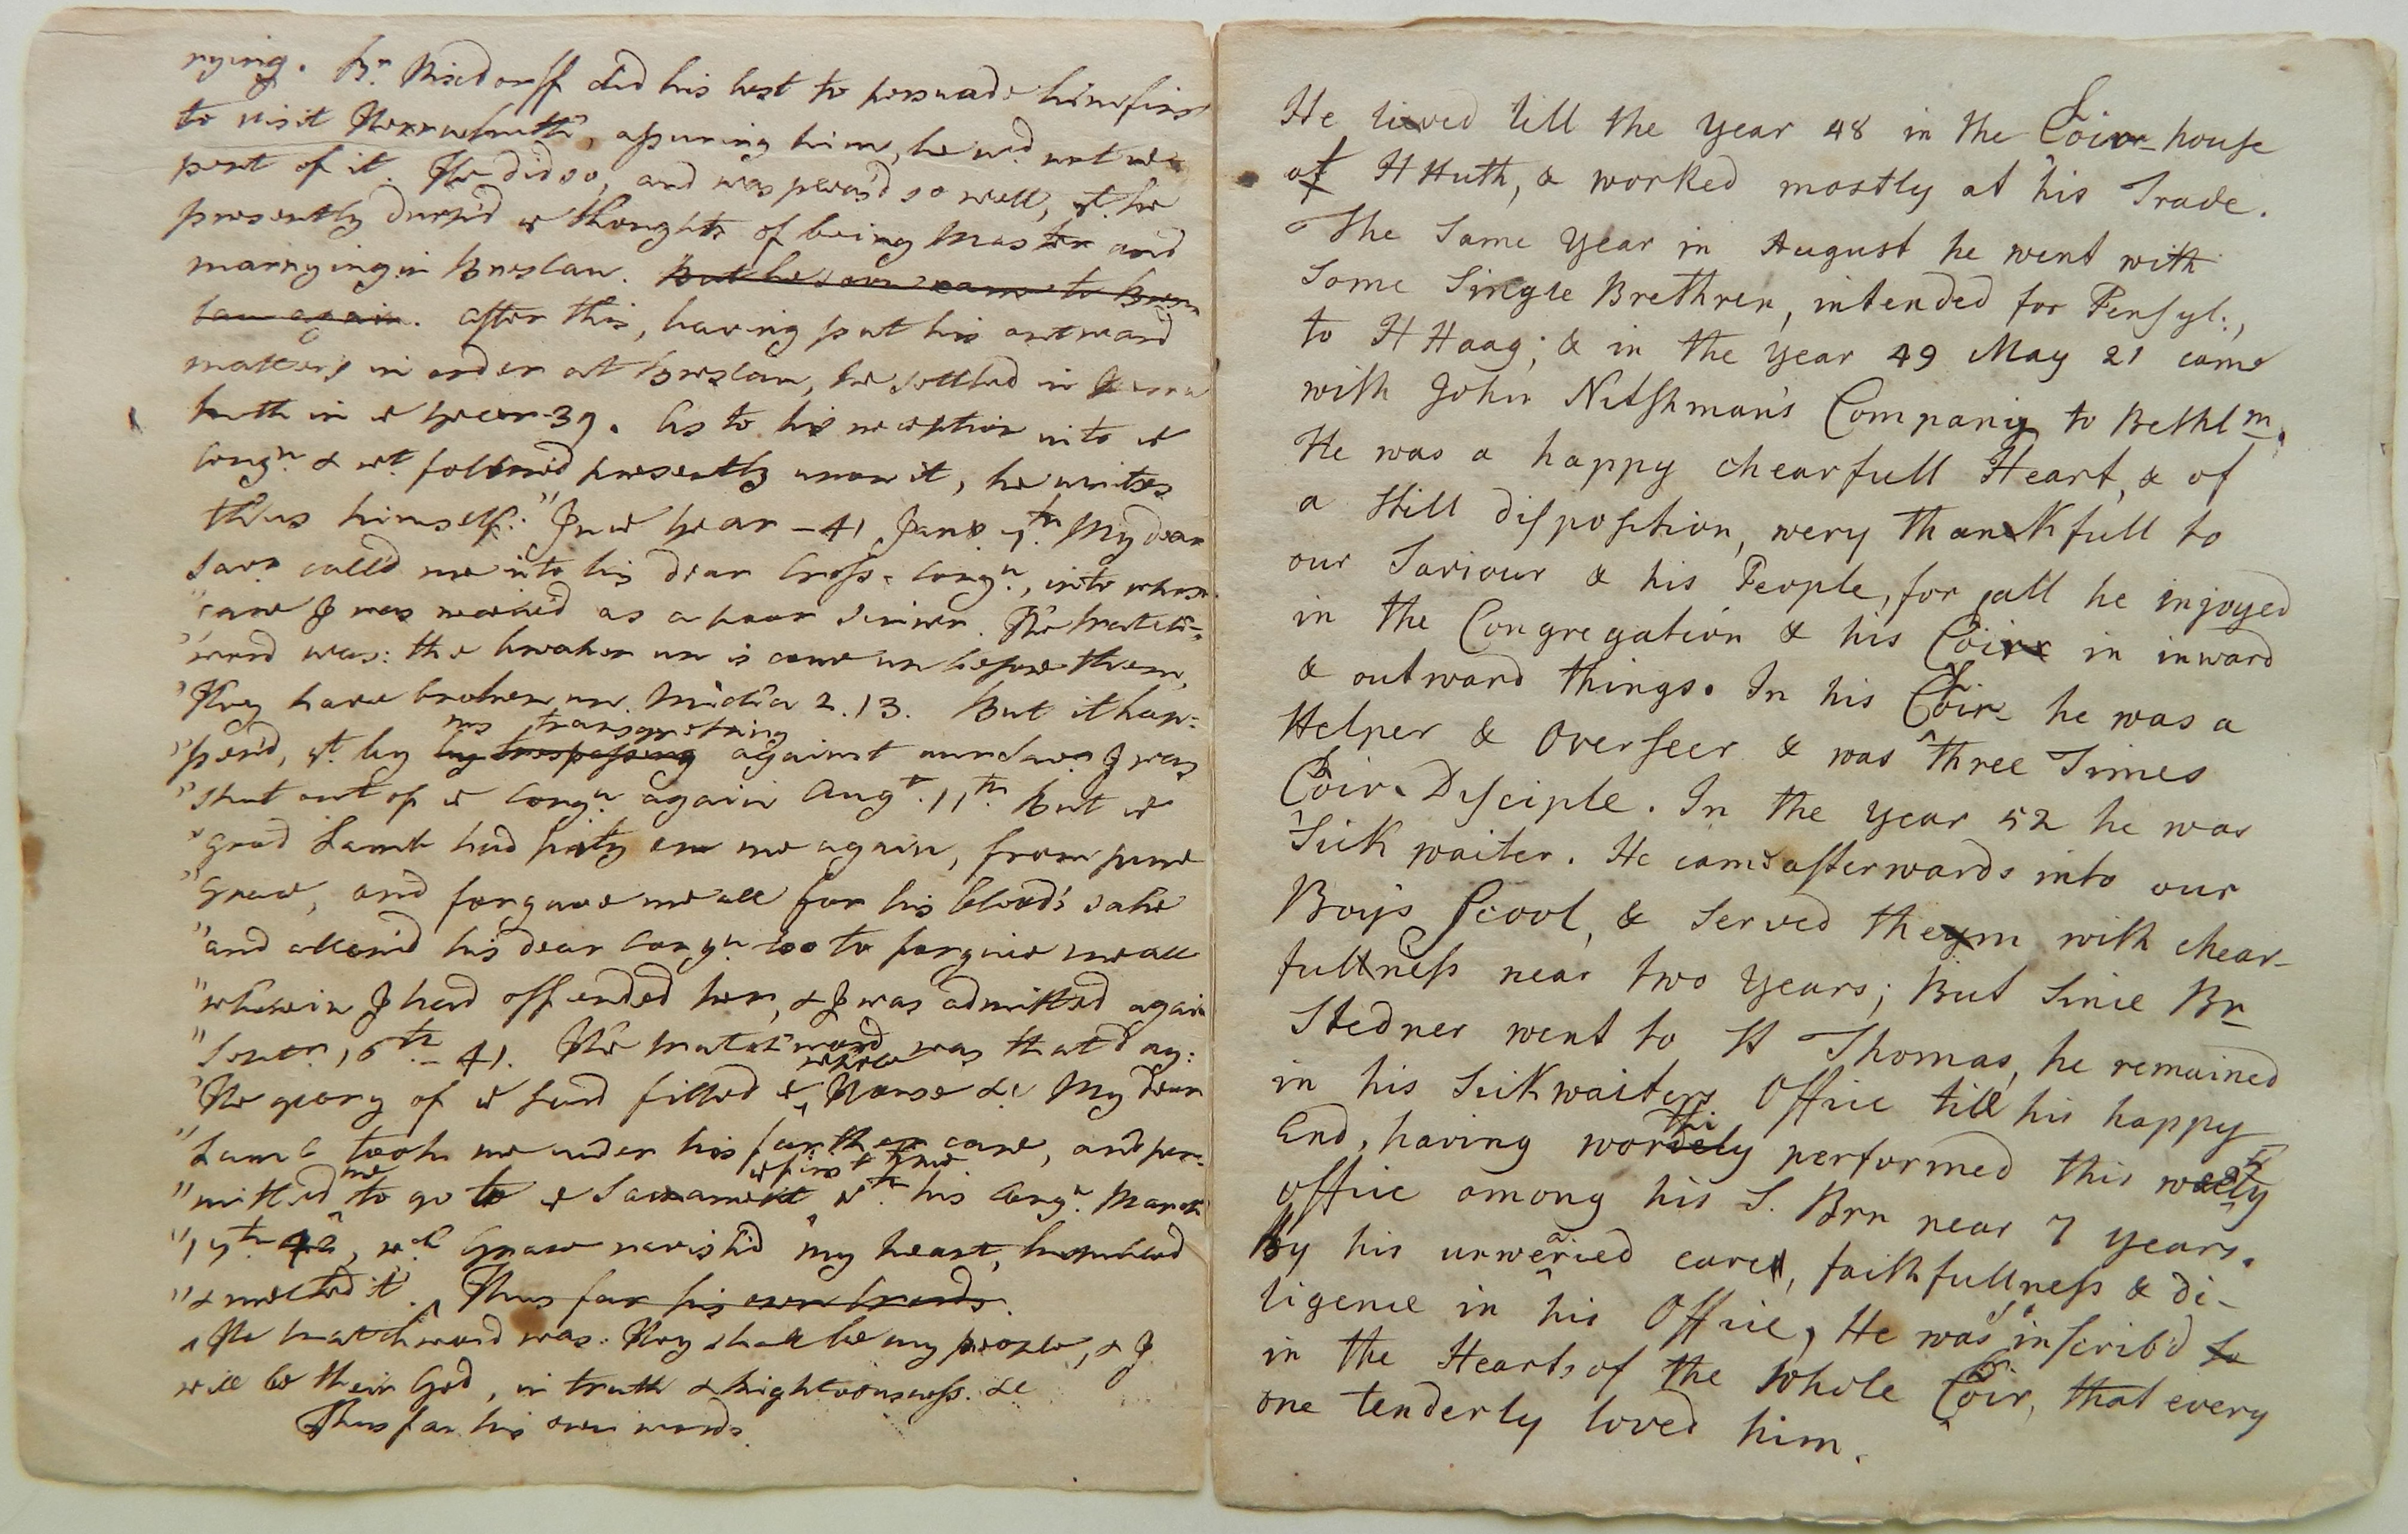 rying. Br. Nisdorff did his best to persuade him first
to visit Herrnhuth, assuring him, he wd. not re-
pent of it. He did so, and was pleas'd so well, yt. he
presently dropp'd ye thoughts of being Master and
marrying in Breslau. But he soon came to Bres
lau again. After this, having put his outward
matters in order at Breslau, he settled in Herrn
huth in ye year 39. As to his reception into ye
Congn. & wt. follow'd presently upon it, he writes
thus himself: "In ye year -41 Jan. 7th. My dear
Savr. call'd me into his dear Cross-Congn., into whose
"care I was receiv'd as a poor Sinner. The watch-
"word was: the breaker up is come up before them,
"They have broken up. Micha 2.13. But it hap-
"pen'd, yt. by my transgressing by trespassing against our Savr. I was
"shut out of ye Congn. again Augt. 11th. But ye
"good Lamb had pity on me again, from pure
"Grace, and forgave me all for his blood's sake
"and allow'd his dear Congn. too to forgive me all
"wherein I had offended her, & I was admitted again
" 16th. -41. The watchword was that day:
"The glory of ye Lord filled ye whole House &c. My dear
"Lamb took me under his farther care, and per-
"mitted me to go to ye Sacrament ye first time wth. his Congn. March
"17th 42, wch. Grace ravish'd my heart, humbled
"& melted it. Thus far his own words.
The watchword was: They shall be my people, & I
will be their God, in truth & righteousness. &c
Thus far his own words.
He lived till the year 48 in the Choir-house
at HHuth, & worked mostly at his Trade.
The Same year in August he went with
Some Single Brethren, intended for Pensyl:,
to HHaag; & in the year 49 May 21 came
with John Nitshman's Company to Bethlm.
He was a happy chearfull Heart, & of
a still disposition, wery thankfull to
our Saviour & his People, for all he injoyed
in the Congregation & his Choir in inward
& outward things. In his Choir he was a
Helper & Overseer & was three Times
Choir-Disciple. In the year 52 he was
Sick waiter. He came afterwards into our
Boys Scool, & served them with chear-
fullness near two years; But Since Br
Stedner went to St Thomas, he remained
in his Sickwaiters Office till his happy
End, having worthily performed this waity
office among his S. Brn near 7 years.
By his unwearied care, faithfullness & di-
ligence in his Office, He was so inscrib'd to
in the Hearts of the whole Choir, that every
one tenderly loved him.